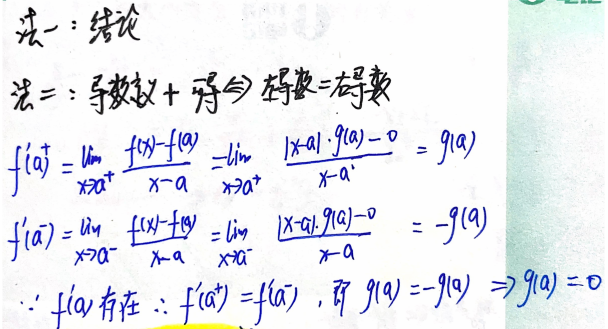 法一：结论
法二：导数定义+可导⇔左导数=右导数
f'(a⁺) = lim x→a⁺ f(x)-f(a) / x-a = lim x→a⁺ |x-a|·g(a)-0 / x-a = g(a)
f'(a⁻) = lim x→a⁻ f(x)-f(a) / x-a = lim x→a⁻ |x-a|·g(a)-0 / x-a = -g(a)
∵ f'(a) 存在 ∴ f'(a⁺) = f'(a⁻) , 即 g(a) = -g(a) ⇒ g(a) = 0